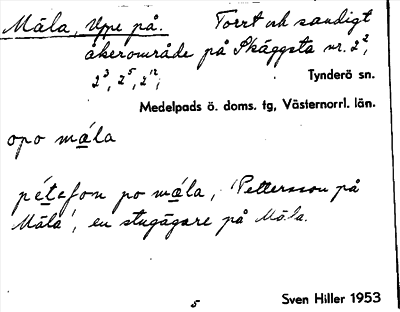 Måla, Uppe på. Torrt och sandigt
åkerområde på Skäggsta nr. 2²,
2³, 2⁵, 2¹², Tynderö sn.
Medelpads ö. doms. tg, Västernorrl. län.
opo må̱la
pé̱tefon po må̱la, 'Pettersson på
Måla', en stugägare på Måla.
5 Sven Hiller 1953